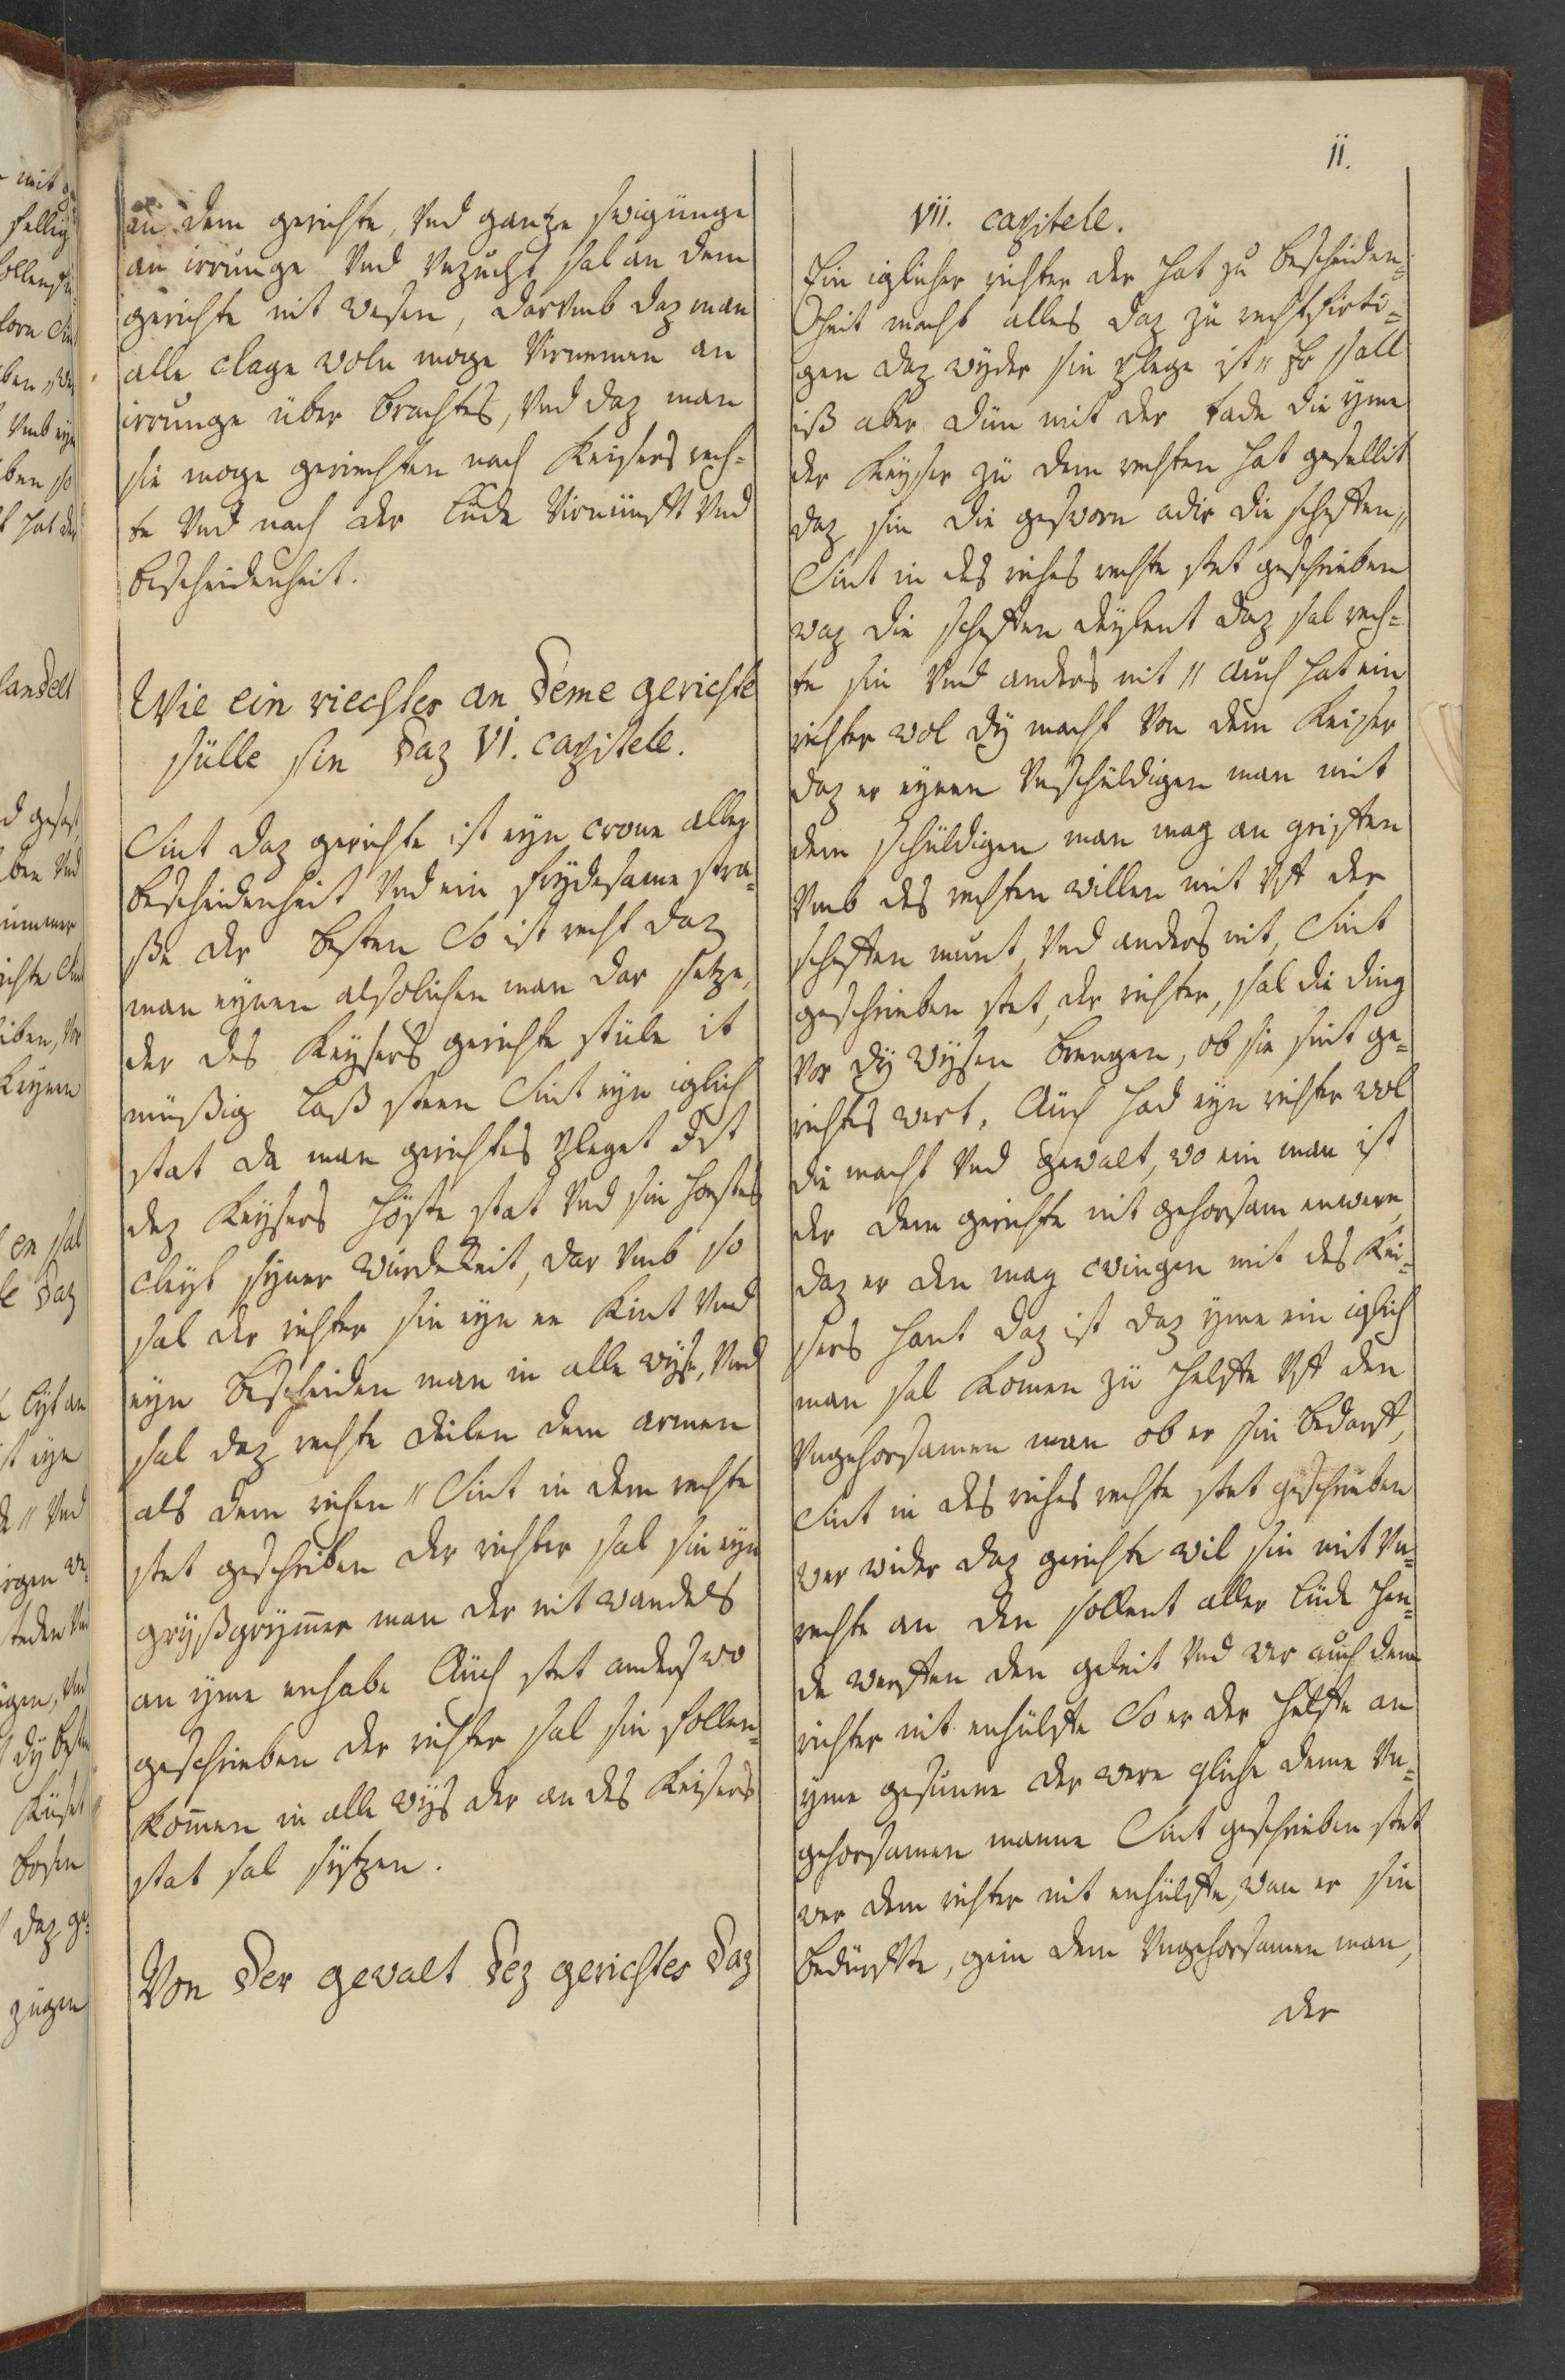 ii.
an dem gerichte, Vnd gantze swigünge
an irrunge Vnd Vnzucht sal an dem
gerichte nit wesen, darVmb daz man
alle clage woln moge Virnemen an
irrunge über brachtes, Vnd daz man
sie moge geriechten nach Keisers rech=
te Vnd nach der lüde Virnünfft Vnd
bescheidenheit.
Wie ein riechter an deme gerichte
sülle sin daz VI. capitele.
Sint daz gerichte ist eyn crone aller
bescheidenheit Vnd ein frydesame stra=
ße der besten So ist recht daz
man eynen alsolichen man dar setze,
der des Keysers gerichte stüle it
müßig laß steen Sint eyn iglich
stat da man gerichtes pleget Ist
dez Keysers höste stat Vnd sin hostes
cleyt syner würdekeit, dar Vmb so
sal der richter sin eyn ee Kint Vnd
eyn bescheiden man in alle wyse, Vnd
sal daz rechte deilen dem armen
als dem richen // Sint in dem rechte
stet geschriben der richter sal sin eyn
gryßgrym̅er man der nit wandels
an yme enhabe Auch stet anderswo
geschrieben der richter sal sin follen=
kom̅en in alle wys der an des Keisers
stat sal sytzen.
Von der gewalt dez gerichtes daz
VII. capitele.
Ein iglicher richter der hat zu bescheiden=
heit macht alles daz zü rechtfirti=
gen daz wyder sin plege ist // Er sall
iß aber dün mit der rade die yme
der Keyser zü dem rechten hat gesellit
daz sin die geswornn adir die scheffen //
Sint in des riches rechte stet geschrieben
waz die scheffen deylent daz sal rech=
te sin Vnd anders nit // auch hat ein
richter wol dy macht Von dem Keiser
daz er eynen Vnschüldigen man mit
dem schüldigen man mag an griffen
Vmb des rechten willen mit Vß der
scheffen munt, Vnd anders nit, Sint
geschrieben stet, der richter, sal die ding
Vor dy wysen brengen, ob sie sint ge=
richtes wert. Auch had eyn richter wol
die macht Vnd gewalt, wo ein man ist
der dem gerichte nit gehorsam enwere,
daz er den mag twingen mit des Kei=
sers hant daz ist daz yme ein iglich
man sal Komen zü helffe Vff den
Vngehorsamen man ob er sin bedarff,
Sint in des riches rechte stet geschrieben
wer wider daz gerichte wil sin mit Vn=
rechte an den sollent aller lüde hen=
de werffen den geleit Vnd wer auch dem
richter nit enhülffe So er der helffe an
yme gesunne der were gliche deme Vn=
gehorsamen manne Sint geschrieben stet
wer dem richter nit enhülffe, wan er sin
bedürffte, gein dem Vngehorsamen man,
der